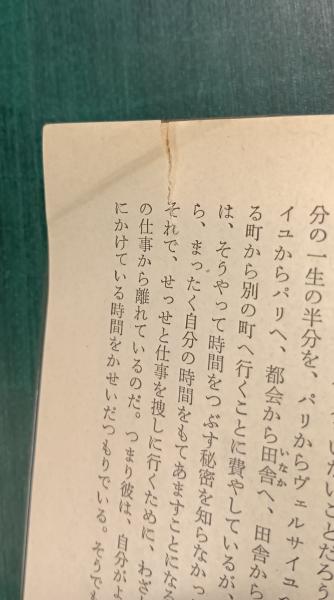 いないことだろう
分の一生の半分を、パリからヴェルサイユへ
イユからパリへ、都会から田舎へ、田舎から
いなか
る町から別の町へ行くことに費やしているが、
は、そうやって時間をつぶす秘密を知らなかっ
ら、まったく自分の時間をもてあますことになる
それで、せっせと仕事を捜しに行くために、わざ
の仕事から離れているのだ。つまり彼は、自分がよ
にかけている時間をかせいだつもりでいる。そうでも